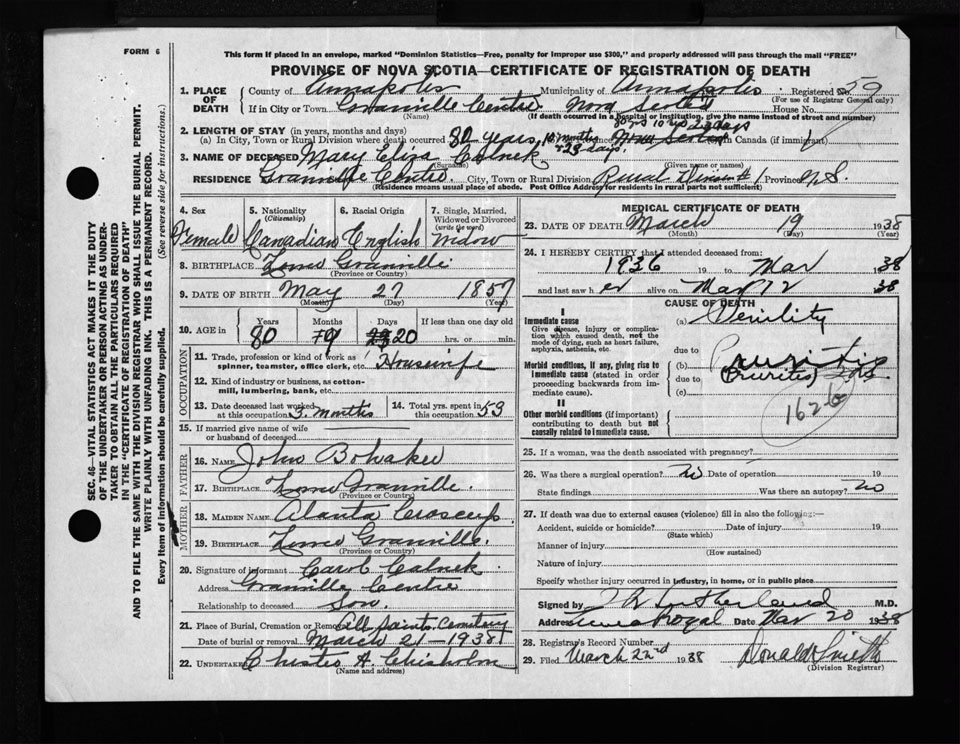 FORM 6
This form if placed in an envelope, marked "Dominion Statistics—Free, penalty for improper use $300," and properly addressed will pass through the mail "FREE"
PROVINCE OF NOVA SCOTIA—CERTIFICATE OF REGISTRATION OF DEATH
1. PLACE OF DEATH
County of Annapolis Municipality of Annapolis Registered No. 59
(For use of Registrar General only)
If in City or Town Granville Centre Nova Scotia House No.
(Name) (If death occurred in a hospital or institution, give name instead of street and number)
2. LENGTH OF STAY (in years, months and days)
(a) In City, Town or Rural Division where death occurred 80 years, in Canada (if immigrant)
3. NAME OF DECEASED Mary Eliza Calnek
(Surname) (Given name or names)
RESIDENCE Granville Centre City, Town or Rural Division Rural Province N.S.
(Residence means usual place of abode. Post Office Address for residents in rural parts not sufficient)
4. Sex
Female
5. Nationality
(Citizenship)
Canadian
6. Racial Origin
English
7. Single, Married, Widowed or Divorced
(write the word)
Widow
8. BIRTHPLACE Granville
(Province or Country)
9. DATE OF BIRTH May 27 1857
(Month) (Day) (Year)
10. AGE in
Years Months Days If less than one day old
80 9 20 hrs. or min.
OCCUPATION
11. Trade, profession or kind of work as spinner, teamster, office clerk, etc. Housewife
12. Kind of industry or business, as cotton-mill, lumbering, bank, etc.
13. Date deceased last worked at this occupation 3 months
14. Total yrs. spent in this occupation 53
15. If married give name of wife or husband of deceased
FATHER
16. NAME John Bohaker
17. BIRTHPLACE Granville
(Province or Country)
MOTHER
18. MAIDEN NAME Croscup
19. BIRTHPLACE Granville
(Province or Country)
20. Signature of informant Carol Calnek
Address Granville Centre
Relationship to deceased Son
21. Place of Burial, Cremation or Removal All Saints Cemetery
Date of burial or removal March 21-1938
22. UNDERTAKER A. Chisholm
(Name and address)
MEDICAL CERTIFICATE OF DEATH
23. DATE OF DEATH March 19 1938
(Month) (Day) (Year)
24. I HEREBY CERTIFY that I attended deceased from:
1936 19 to Mar 38
and last saw her alive on Mar 12 38
CAUSE OF DEATH
I
Immediate cause
Give disease, injury or complication which caused death, not the mode of dying, such as heart failure, asphyxia, asthenia, etc.
(a) Senility
due to
Morbid conditions, if any, giving rise to immediate cause (stated in order proceeding backwards from immediate cause).
(b)
due to
(c)
II
Other morbid conditions (if important) contributing to death but not causally related to immediate cause.
162b
25. If a woman, was the death associated with pregnancy?
26. Was there a surgical operation? no Date of operation 19
State findings Was there an autopsy? no
27. If death was due to external causes (violence) fill in also the following:—
Accident, suicide or homicide? Date of injury 19
(State which)
Manner of injury
(How sustained)
Nature of injury
Specify whether injury occurred in industry, in home, or in public place
Signed by Sutherland M.D.
Address Royal Date Mar 20 1938
28. Registrar's Record Number
29. Filed March 22nd 1938 Donald Smith
(Division Registrar)
SEC. 46—VITAL STATISTICS ACT MAKES IT THE DUTY
OF THE UNDERTAKER OR PERSON ACTING AS UNDER-
TAKER TO OBTAIN ALL THE PARTICULARS REQUIRED
IN THE "CERTIFICATE OF REGISTRATION OF DEATH"
AND TO FILE THE SAME WITH THE DIVISION REGISTRAR WHO SHALL ISSUE THE BURIAL PERMIT.
WRITE PLAINLY WITH UNFADING INK. THIS IS A PERMANENT RECORD.
Every item of information should be carefully supplied. (See reverse side for instructions.)